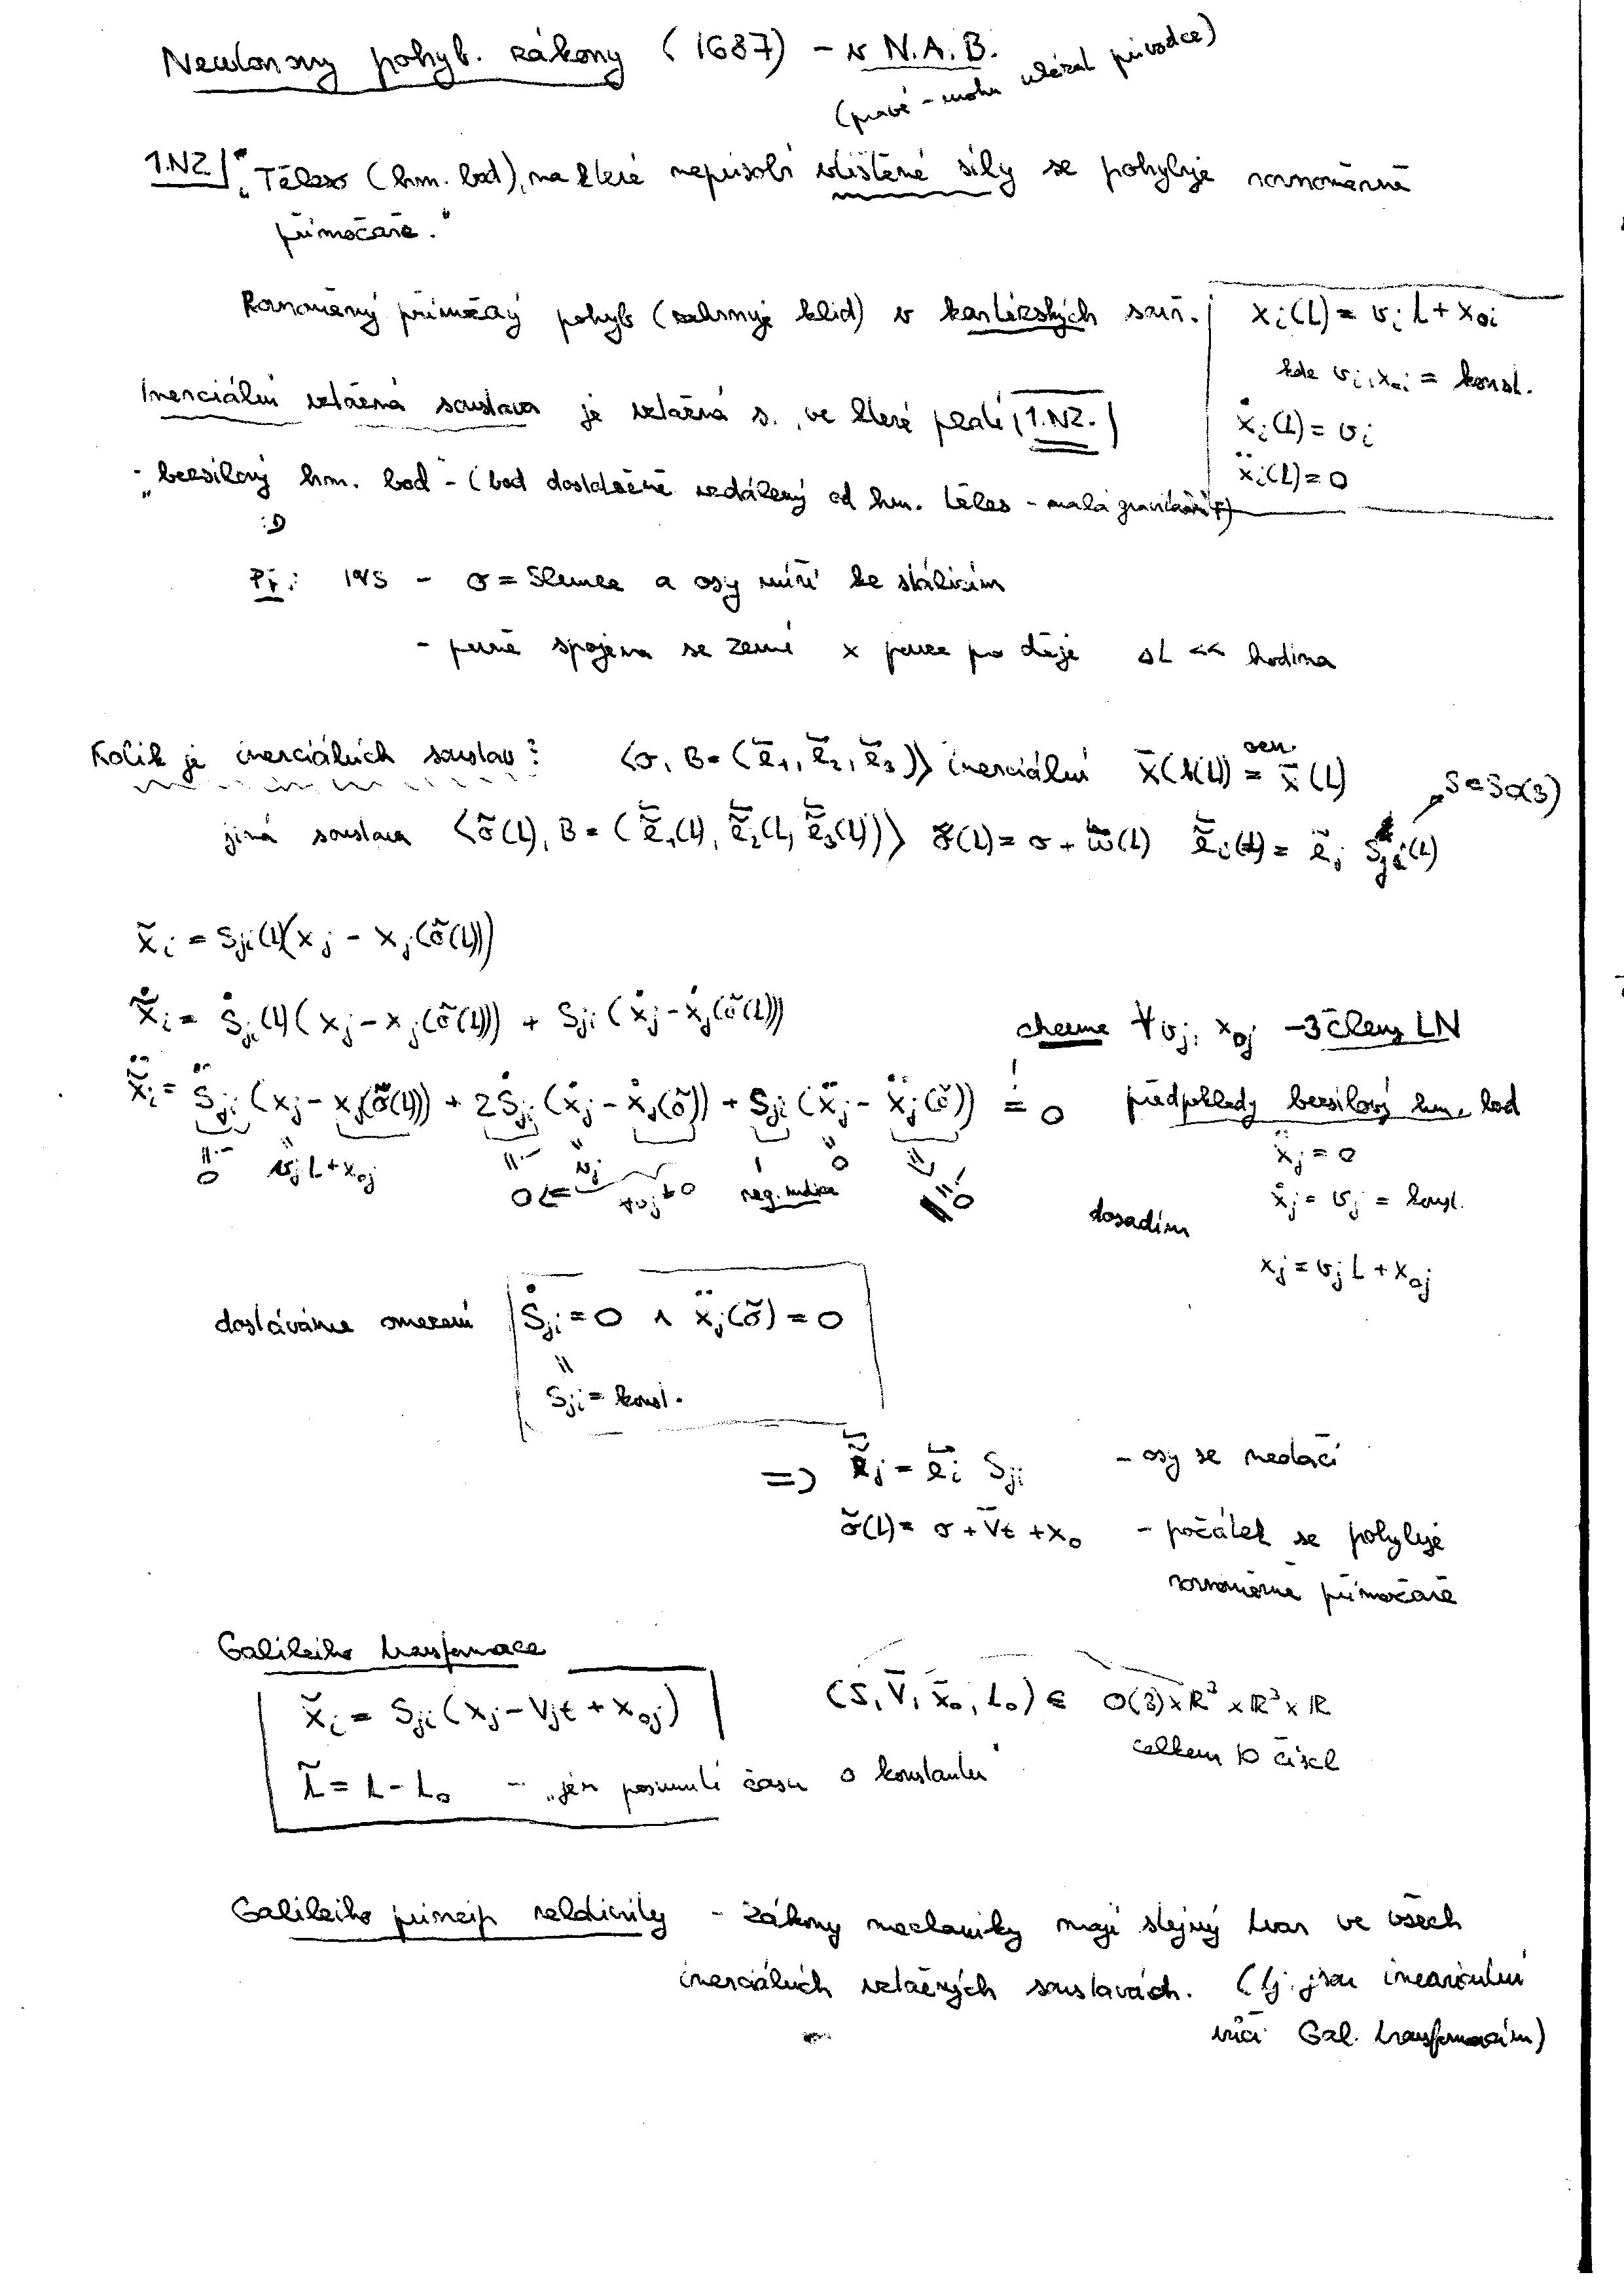 Newtonovy pohyb. zákony (1687) – v N.A.B.
(pravé – mohu ukázat průvodce)
1.NZ. „Těleso (hm. bod), na které nepůsobí vtištěné síly se pohybuje rovnoměrně
přímočaře."
Rovnoměrný přímočarý pohyb (zahrnuje klid) v kartézských souř.
x_i(t) = v_i t + x_{0i}
kde v_i, x_{0i} = konst.
ẋ_i(t) = v_i
ẍ_i(t) = 0
Inerciální vztažná soustava je vztažná s., ve které platí 1.NZ.
- „bezsilový hm. bod" - (bod dostatečně vzdálený od hm. těles - malá gravitační F)
:D
Př: IVS - σ = Slunce a osy míří ke stálicím
- pevně spojena se Zemí x pouze po děje Δt << hodina
Kolik je inerciálních soustav? ⟨σ, B = (e⃗_1, e⃗_2, e⃗_3)⟩ inerciální x̄(b(t)) = x̄(t)
S ∈ SO(3)
jiná soustava ⟨σ̃(t), B = (ẽ_1(t), ẽ_2(t), ẽ_3(t))⟩ σ̃(t) = σ + w⃗(t) ẽ_i(t) = e⃗_j S_{ji}(t)
x̃_i = S_{ji}(t)(x_j - x_j(σ̃(t)))
x̃̇_i = Ṡ_{ji}(t)(x_j - x_j(σ̃(t))) + S_{ji}(ẋ_j - ẋ_j(σ̃(t)))
chceme ∀v_j, x_{0j} - 3 členy LN
x̃̈_i = S̈_{ji}(x_j - x_j(σ̃(t))) + 2Ṡ_{ji}(ẋ_j - ẋ_j(σ̃)) + S_{ji}(ẍ_j - ẍ_j(σ̃)) = 0
předpoklady bezsilový hm. bod
0 v_j t + x_{0j} 0 v_j ∀v_j ≠ 0 reg. matice 0 0
ẍ_j = 0
ẋ_j = v_j = konst.
dosadím
x_j = v_j t + x_{0j}
dostáváme omezení Ṡ_{ji} = 0 ∧ ẍ_j(σ̃) = 0
S_{ji} = konst.
=> ẽ_j = e⃗_i S_{ji} - osy se neotáčí
σ̃(t) = σ + V̄t + x_0 - počátek se pohybuje
rovnoměrně přímočaře
Galileiho transformace
x̃_i = S_{ji}(x_j - V_j t + x_{0j})
(S, V̄, x̄_0, t_0) ∈ O(3) × ℝ³ × ℝ³ × ℝ
celkem 10 čísel
t̃ = t - t_0 - „jen posunutí času o konstantu"
Galileiho princip relativity - zákony mechaniky mají stejný tvar ve všech
inerciálních vztažných soustavách. (tj. jsou invariantní
vůči Gal. transformacím)